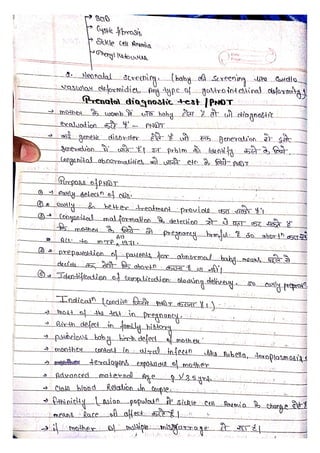 → SCD
→ Cystic fibrosis
→ Sickle Cell Anemia
→ Phenyl Ketonuria
Neonatal Screening. (baby की Screening like Cardio
vascular deformities Any type of gastrointestinal deformity)
Prenatal diagnostic test / PNDT
→ mother के womb में जब baby होता है तो जो diagnostic
evaluation करते हैं - PNDT
→ कई genetic disorder होते हैं जो एक generation से दूसरे
generation में जाते हैं। इन prblm को Identify करने के लिये
Congenital abnormalities को जानने etc के लिये PNDT
Purpose of PNDT
→ early detectn of
early & better treatment provide कर सकते हैं।
Congenital malformation के detection से
कि mother के लिये pregnancy harmful है so abortn
Acc to MTP Act 1971.
preparation of parents for abnormal baby means
decide कर लेंगे कि abortn करना है या नहीं।
Identification of complication during delivery. so early preparn
Indicatn (Condition जिनमें PNDT करना है।)
→ most of the test in pregnancy.
→ Birth defect in family history
→ previous baby birth defect of mother
→ mother contact in viral infectn like Rubella, toxoplasmosis
→ teratogens exposure of mother
→ Advanced maternal Age > 35 yrs.
→ Close blood Relation in couple.
→ Ethinicity (Asian populatn में sickle cell Anemia के
means Race भी affect करती है।
→ if mother of multiple miscarriage